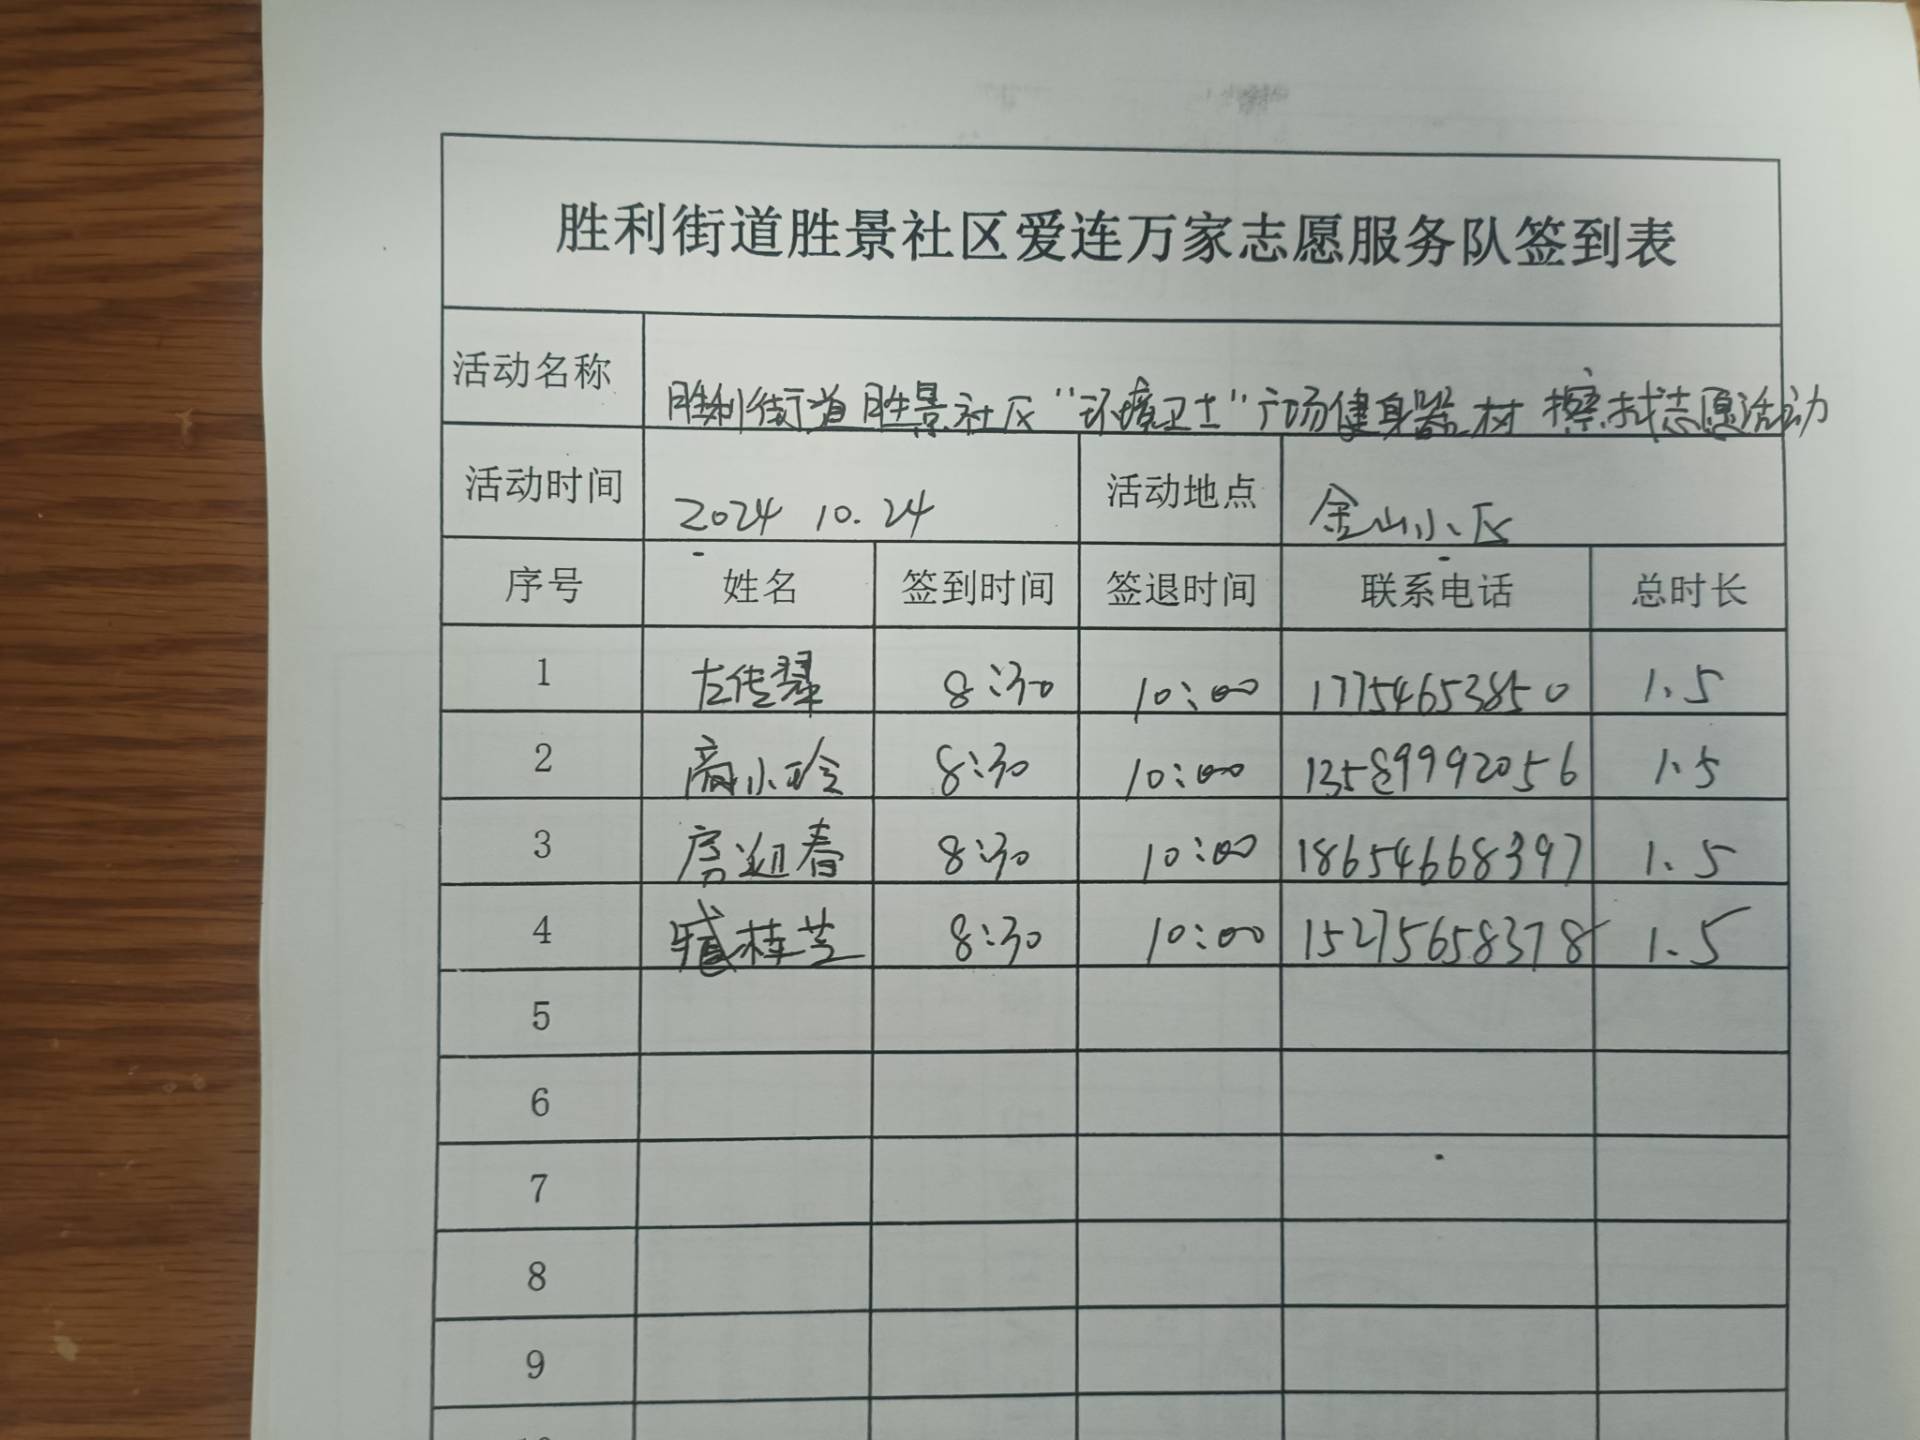 胜利街道胜景社区爱连万家志愿服务队签到表
活动名称 胜利街道胜景社区“环境卫士”广场健身器材擦拭志愿活动
活动时间 2024 10.24 活动地点 金山小区
序号 姓名 签到时间 签退时间 联系电话 总时长
1 左传翠 8:30 10:00 17754653850 1.5
2 商小玲 8:30 10:00 13589992056 1.5
3 房迎春 8:30 10:00 18654668397 1.5
4 臧桂芝 8:30 10:00 15275658378 1.5
5
6
7
8
9